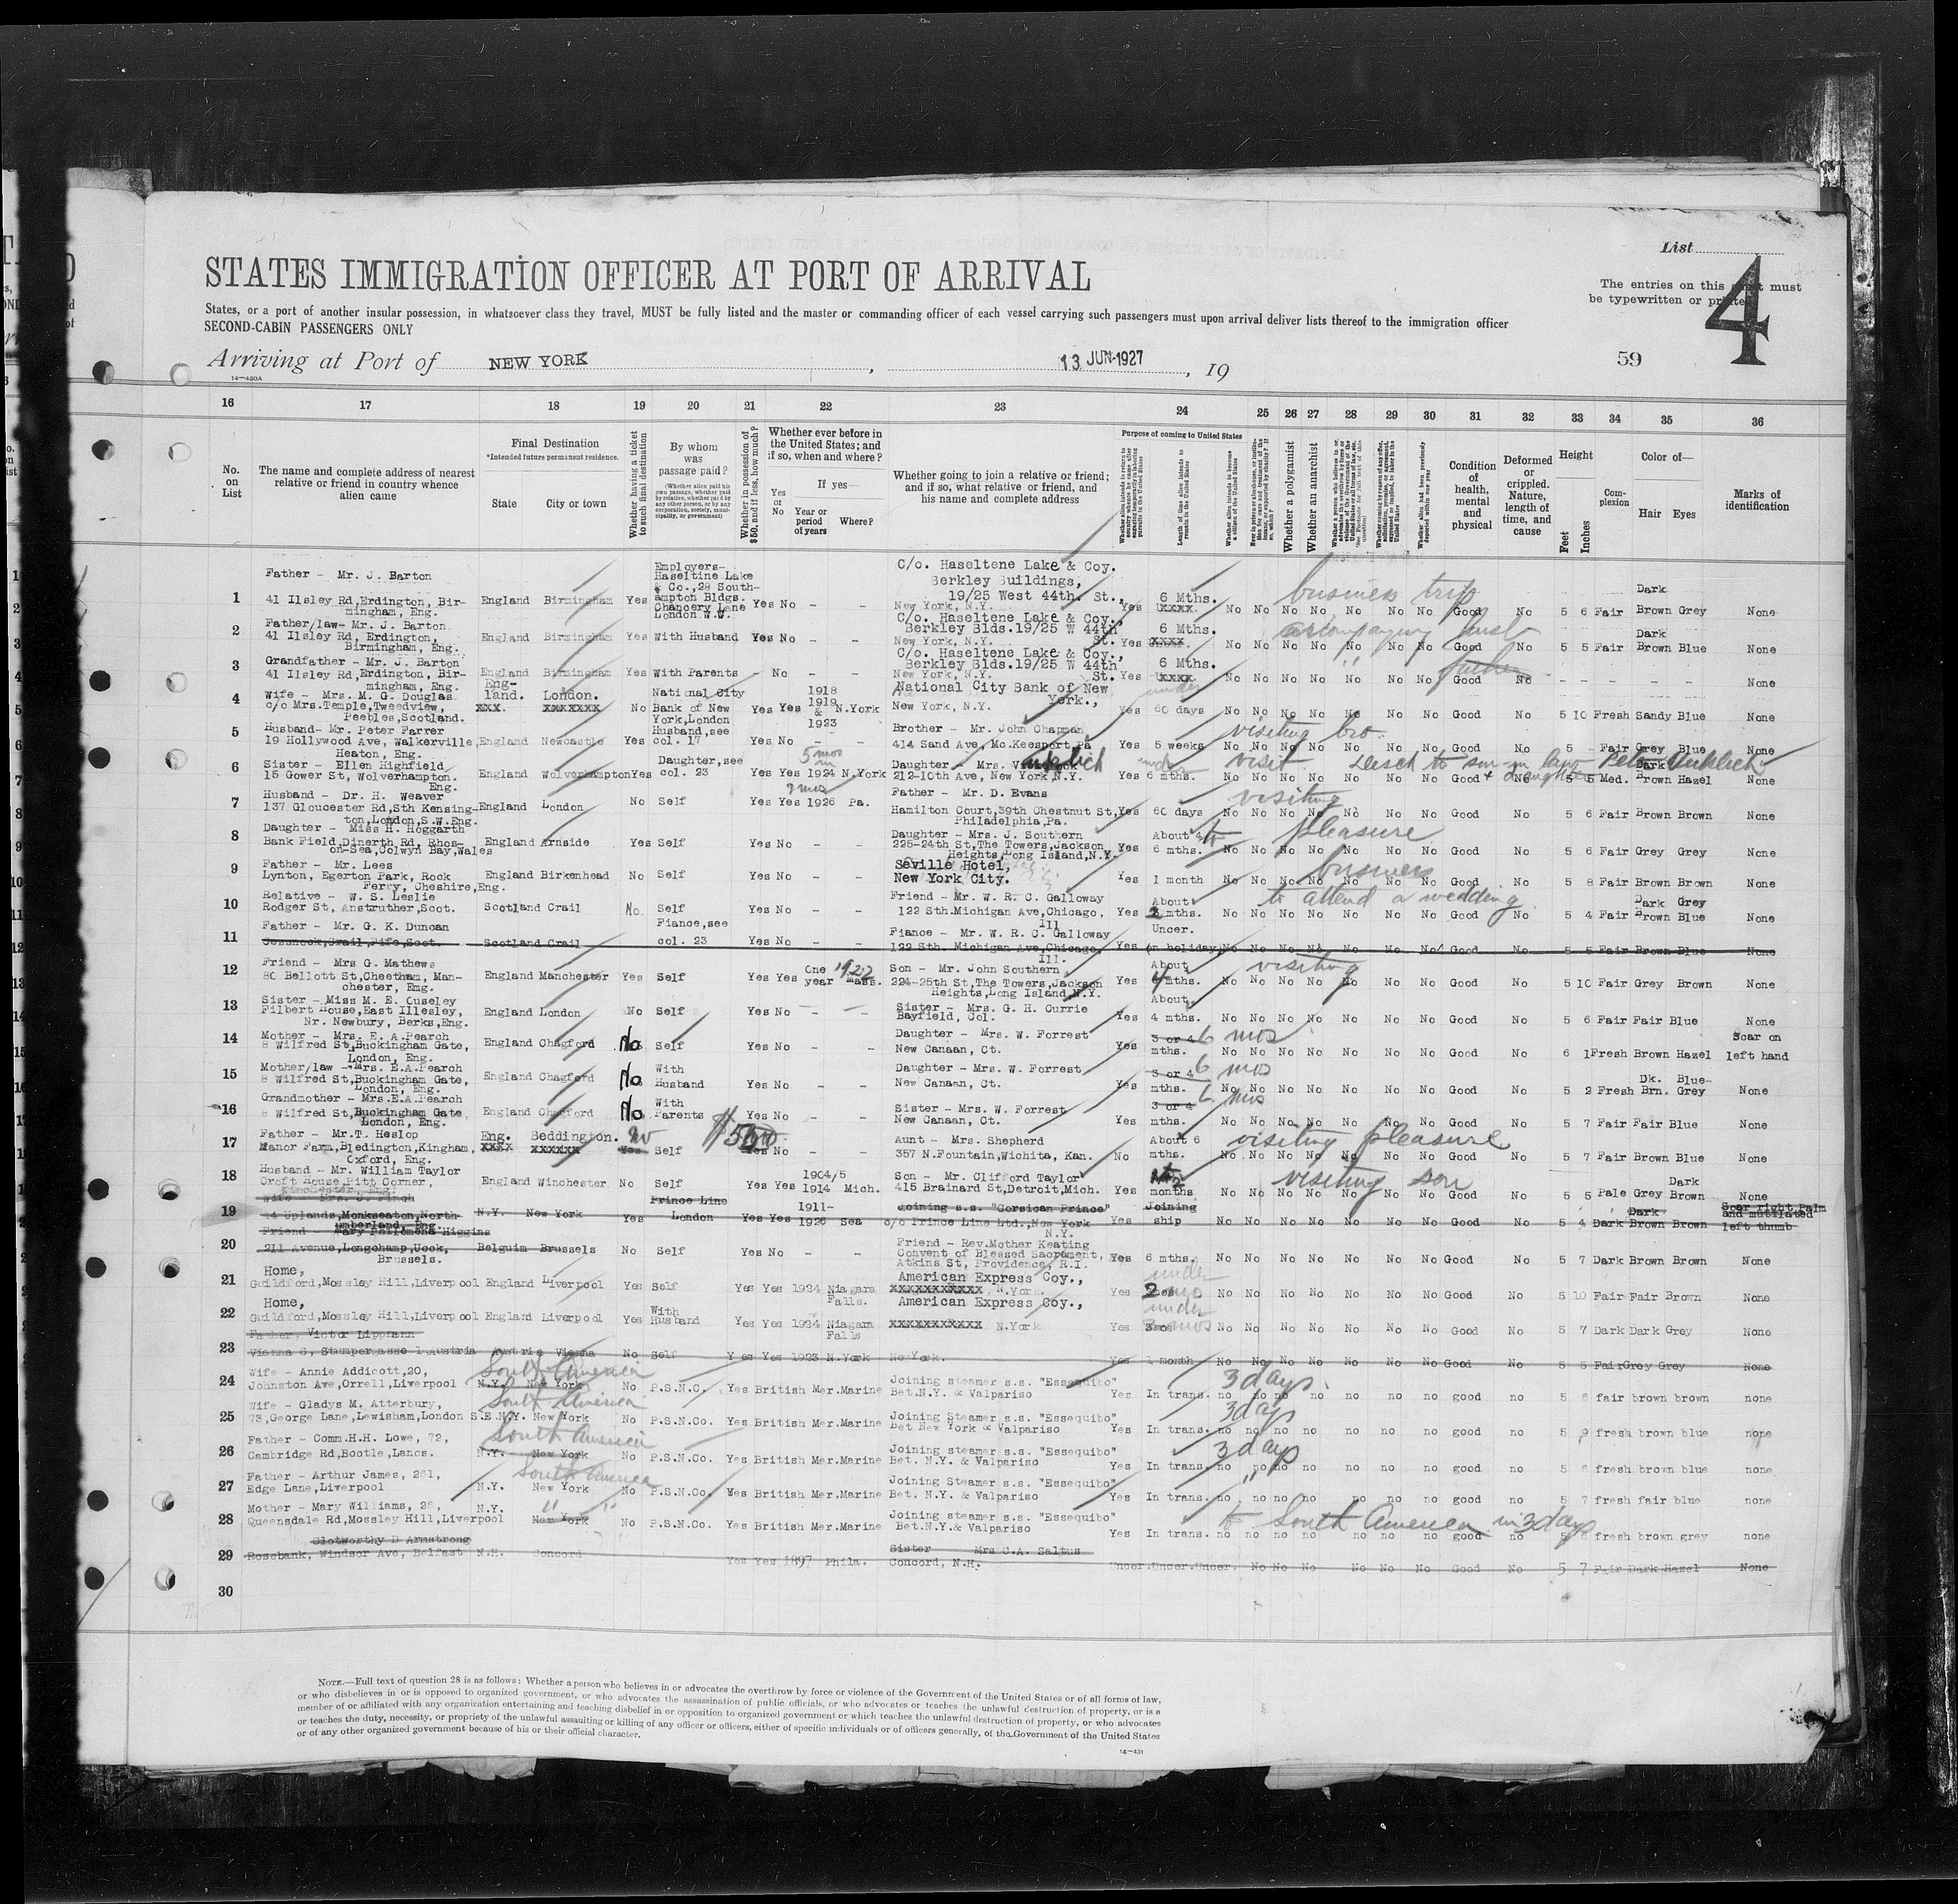 List
STATES IMMIGRATION OFFICER AT PORT OF ARRIVAL
The entries on this sheet must
be typewritten or printed.
4
States, or a port of another insular possession, in whatsoever class they travel, MUST be fully listed and the master or commanding officer of each vessel carrying such passengers must upon arrival deliver lists thereof to the immigration officer
SECOND-CABIN PASSENGERS ONLY
Arriving at Port of NEW YORK, 13 JUN 1927, 19
59
14—430A
16 17 18 19 20 21 22 23 24 25 26 27 28 29 30 31 32 33 34 35 36
No. on List
The name and complete address of nearest relative or friend in country whence alien came
Final Destination
*Intended future permanent residence.
State City or town
Whether having a ticket to such final destination
By whom was passage paid?
Whether in possession of $50, and if less, how much?
Whether ever before in the United States; and if so, when and where?
Yes or No
If yes—
Year or period of years
Where?
Whether going to join a relative or friend; and if so, what relative or friend, and his name and complete address
Purpose of coming to United States
Length of time alien intends to remain in the United States
Whether alien intends to become a citizen of the United States
Whether a polygamist
Whether an anarchist
Condition of health, mental and physical
Deformed or crippled. Nature, length of time, and cause
Height
Feet Inches
Complexion
Color of—
Hair Eyes
Marks of identification
1 Father - Mr. J. Barton 41 Ilsley Rd, Erdington, Birmingham, Eng. England Birmingham Yes Employers- Haseltine Lake & Co., 28 Southampton Bldgs. Chancery Lane London W.C. Yes No - - C/o. Haseltene Lake & Coy. Berkley Buildings, 19/25 West 44th. St., New York, N.Y. Yes 6 Mths. XXXX business trip No No No No No No No Good No 5 6 Fair Dark Brown Grey None
2 Father/law- Mr. J. Barton 41 Ilsley Rd, Erdington, Birmingham, Eng. England Birmingham Yes With Husband Yes No - - C/o. Haseltene Lake & Coy., Berkley Blds. 19/25 W 44th St. New York, N.Y. Yes 6 Mths. XXXX accompanying husb No No No No No No No Good No 5 5 Fair Dark Brown Blue None
3 Grandfather - Mr. J. Barton 41 Ilsley Rd, Erdington, Birmingham, Eng. England Birmingham Yes With Parents - No - - C/o. Haseltene Lake & Coy., Berkley Blds. 19/25 W 44th St. New York, N.Y. Yes 6 Mths. XXXX " father No No No No No No No Good No - - - - - None
4 Wife - Mrs. M. G. Douglas c/o Mrs. Temple, Tweedview, Peebles, Scotland. England. London. XXX. XXXXXXX No National City Bank of New York, London Yes Yes 1918 1919 & 1923 N.York National City Bank of New York., New York, N.Y. Yes under 60 days No No No No No No No Good No 5 10 Fresh Sandy Blue None
5 Husband- Mr. Peter Farrer 19 Hollywood Ave, Walkerville, Heaton, Eng. England Newcastle Yes Husband, see col. 17 Yes No - - Brother - Mr. John Chapman 414 Sand Ave, Mc.Keesport Pa Yes 5 weeks visiting bro No No No No No No No Good No 5 - Fair Grey Blue None
6 Sister - Ellen Highfield 15 Gower St, Wolverhampton. Eng. England Wolverhampton Yes Daughter, see col. 23 Yes Yes 5 mos 1924 N.York Daughter - Mrs. 212-10th Ave, New York N.Y. Yes under 6 mths. visit. Disch to son-in-law Peter & daughter No No No No No No No Good No 5 5 Med. Dark Brown Hazel
7 Husband - Dr. H. Weaver 137 Gloucester Rd, Sth Kensington, London, S.W. Eng. England London No Self Yes Yes 2 mos 1926 Pa. Father - Mr. D. Evans Hamilton Court, 39th Chestnut St, Philadelphia, Pa. Yes 60 days visiting No No No No No No No Good No 5 6 Fair Brown Brown None
8 Daughter - Miss H. Hoggarth Bank Field, Dinerth Rd, Rhos-on-Sea, Colwyn Bay, Wales England Arnside Yes Self Yes No - - Daughter - Mrs. J. Southern 225-24th St, The Towers, Jackson Heights, Long Island, N.Y. Yes About 6 mths. pleasure No No No No No No No Good No 5 6 Fair Grey Grey None
9 Father - Mr. Lees Lynton, Egerton Park, Rock Ferry, Cheshire, Eng. England Birkenhead No Self Yes No - - Seville Hotel, New York City. Yes 1 month business No No No No No No No Good No 5 8 Fair Brown Brown None
10 Relative - W. S. Leslie Rodger St, Anstruther, Scot. Scotland Crail No. Self Yes No - - Friend - Mr. W. R. C. Galloway 122 Sth. Michigan Ave, Chicago, Ill Yes About 2 mths. to attend a wedding No No No No No No No Good No 5 4 Fair Dark Brown Grey Blue None
11 Father - Mr. G. K. Duncan Cessnock, Crail, Fife, Scot. Scotland Crail Fiance, see col. 23 Yes No - - Fiance - Mr. W. R. C. Galloway 122 Sth. Michigan Ave, Chicago, Ill. Yes Uncer. (on holiday) No No No No No No No Good No 5 5 Fair Brown Blue None
12 Friend - Mrs G. Mathews 80 Bellott St, Cheetham, Manchester, Eng. England Manchester Yes Self Yes Yes One year 1922 Mass. Son - Mr. John Southern 224-25th St, The Towers, Jackson Heights, Long Island, N.Y. Yes About 4 mths. visiting No No No No No No No Good No 5 10 Fair Grey Brown None
13 Sister - Miss M. E. Cuseley Filbert House, East Illesley, Nr. Newbury, Berks, Eng. England London No Self Yes No - - Sister - Mrs. G. H. Currie Bayfield, Col. Yes About 4 mths. No No No No No No No Good No 5 6 Fair Fair Blue None
14 Mother - Mrs. E. A. Pearch 8 Wilfred St, Buckingham Gate, London, Eng. England Chagford No Self Yes No - - Daughter - Mrs. W. Forrest New Canaan, Ct. Yes 3 or 4 mths. 6 mos No No No No No No No Good No 6 1 Fresh Brown Hazel Scar on left hand
15 Mother/law - Mrs. E.A. Pearch 8 Wilfred St, Buckingham Gate, London, Eng. England Chagford No With Husband Yes No - - Daughter - Mrs. W. Forrest New Canaan, Ct. Yes 3 or 4 mths. 6 mos No No No No No No No Good No 5 2 Fresh Dk. Brn. Blue-Grey None
16 Grandmother - Mrs. E.A. Pearch 8 Wilfred St, Buckingham Gate London, Eng. England Chagford No With Parents Yes No - - Sister - Mrs. W. Forrest New Canaan, Ct. Yes 3 or 4 mths. 6 mos No No No No No No No Good No 5 7 Fair Fair Blue None
17 Father - Mr. T. Heslop Manor Farm, Bledington, Kingham, Oxford, Eng. Eng. Beddington. XXXX XXXXXX No Yes Self $500 Yes No - - Aunt - Mrs. Shepherd 357 N. Fountain, Wichita, Kan. No About 6 mths. visiting pleasure No No No No No No No Good No 5 7 Fair Brown Blue None
18 Husband - Mr. William Taylor Croft House, Pitt Corner, Winchester, Eng. England Winchester No Self Yes Yes 1904/5 1914 Mich. Son - Mr. Clifford Taylor 415 Brainard St, Detroit, Mich. Yes 2 months visiting son No No No No No No No Good No 5 5 Pale Grey Dark Brown None
19 Wife - Mrs. J. Finch 44 Uplands, Monkseaton, Northumberland, Eng. N.Y. New York Yes Prince Line London Yes Yes 1911-1926 Sea Joining s.s. "Corsican Prince" c/o Prince Line Ltd., New York N.Y. Yes Joining ship No No No No No No No Good No 5 4 Dark Dark Brown Brown Scar right Palm and mutilated left thumb
20 Friend Mary Philomena Higgins 211 Avenue, Longchamp, Ucck, Brussels. Belguim Brussels No Self Yes No - - Friend - Rev. Mother Keating Convent of Blessed Sacrament, Atkins St, Providence, R.I. Yes 6 mths. No No No No No No No Good No 5 7 Dark Brown Brown None
21 Home, Guildford, Mossley Hill, Liverpool England Liverpool Yes Self Yes Yes 1924 Niagara Falls. American Express Coy., XXXXXXXXXXX N.York Yes under 2 mo No No No No No No No Good No 5 10 Fair Fair Brown None
22 Home, Guildford, Mossley Hill, Liverpool England Liverpool Yes With Husband Yes Yes 1924 Niagara Falls American Express Coy., XXXXXXXXXXX N.York Yes under 3mos No No No No No No No Good No 5 7 Dark Dark Grey None
23 Father Victor Lippmann Vienna 6, Stumpergasse 1 Austria Austria Vienna No Self Yes Yes 1923 N.York New York. Yes 1 month No No No No No No No Good No 5 5 Fair Grey Grey None
24 Wife - Annie Addicott, 20, Johnston Ave, Orrell, Liverpool South America N.Y. New York No P.S.N.C. Yes British Mer. Marine Joining steamer s.s. "Essequibo" Bet. N.Y. & Valpariso Yes In trans. 3 days no no no no no no no good no 5 6 fair brown brown none
25 Wife - Gladys M. Atterbury, 73, George Lane, Lewisham, London S.E. South America N.Y. New York No P.S.N.Co. Yes British Mer. Marine Joining Steamer s.s. "Essequibo" Bet New York & Valpariso Yes In trans. 3 days no no no no no no no good no 5 9 fresh brown blue none
26 Father - Comm. H.H. Lowe, 72, Cambridge Rd, Bootle, Lancs. South America N.Y. New York No P.S.N.Co. Yes British Mer. Marine Joining steamer s.s. "Essequibo" Bet. N.Y. & Valpariso Yes In trans. 3 days no no no no no no no good no 5 6 fresh brown blue none
27 Father - Arthur James, 261, Edge Lane, Liverpool South America N.Y. New York No P.S.N.Co. Yes British Mer. Marine Joining Steamer s.s. "Essequibo" Bet. N.Y. & Valpariso Yes In trans. " no no no no no no no good no 5 7 fresh fair blue none
28 Mother - Mary Williams, 26, Queensdale Rd, Mossley Hill, Liverpool " " N.Y. New York No P.S.N.Co. Yes British Mer. Marine Joining steamer s.s. "Essequibo" Bet. N.Y. & Valpariso Yes In trans. to South America in 3 days no no no no no no no good no fresh brown grey none
29 Clotworthy D Armstrong Rosebank, Windsor Ave, Belfast N.H. Concord Yes Yes 1897 Phila. Sister Mrs C.A. Saltus Concord, N.H. Uncer. Uncer. Uncer. No No No No No No Good No 5 7 Fair Dark Hazel None
30
NOTE.—Full text of question 28 is as follows: Whether a person who believes in or advocates the overthrow by force or violence of the Government of the United States or of all forms of law,
or who disbelieves in or is opposed to organized government, or who advocates the assassination of public officials, or who advocates or teaches the unlawful destruction of property, or is a
member of or affiliated with any organization entertaining and teaching disbelief in or opposition to organized government or which teaches the unlawful destruction of property, or who advocates
or teaches the duty, necessity, or propriety of the unlawful assaulting or killing of any officer or officers, either of specific individuals or of officers generally, of the Government of the United States
or of any other organized government because of his or their official character.
14—431